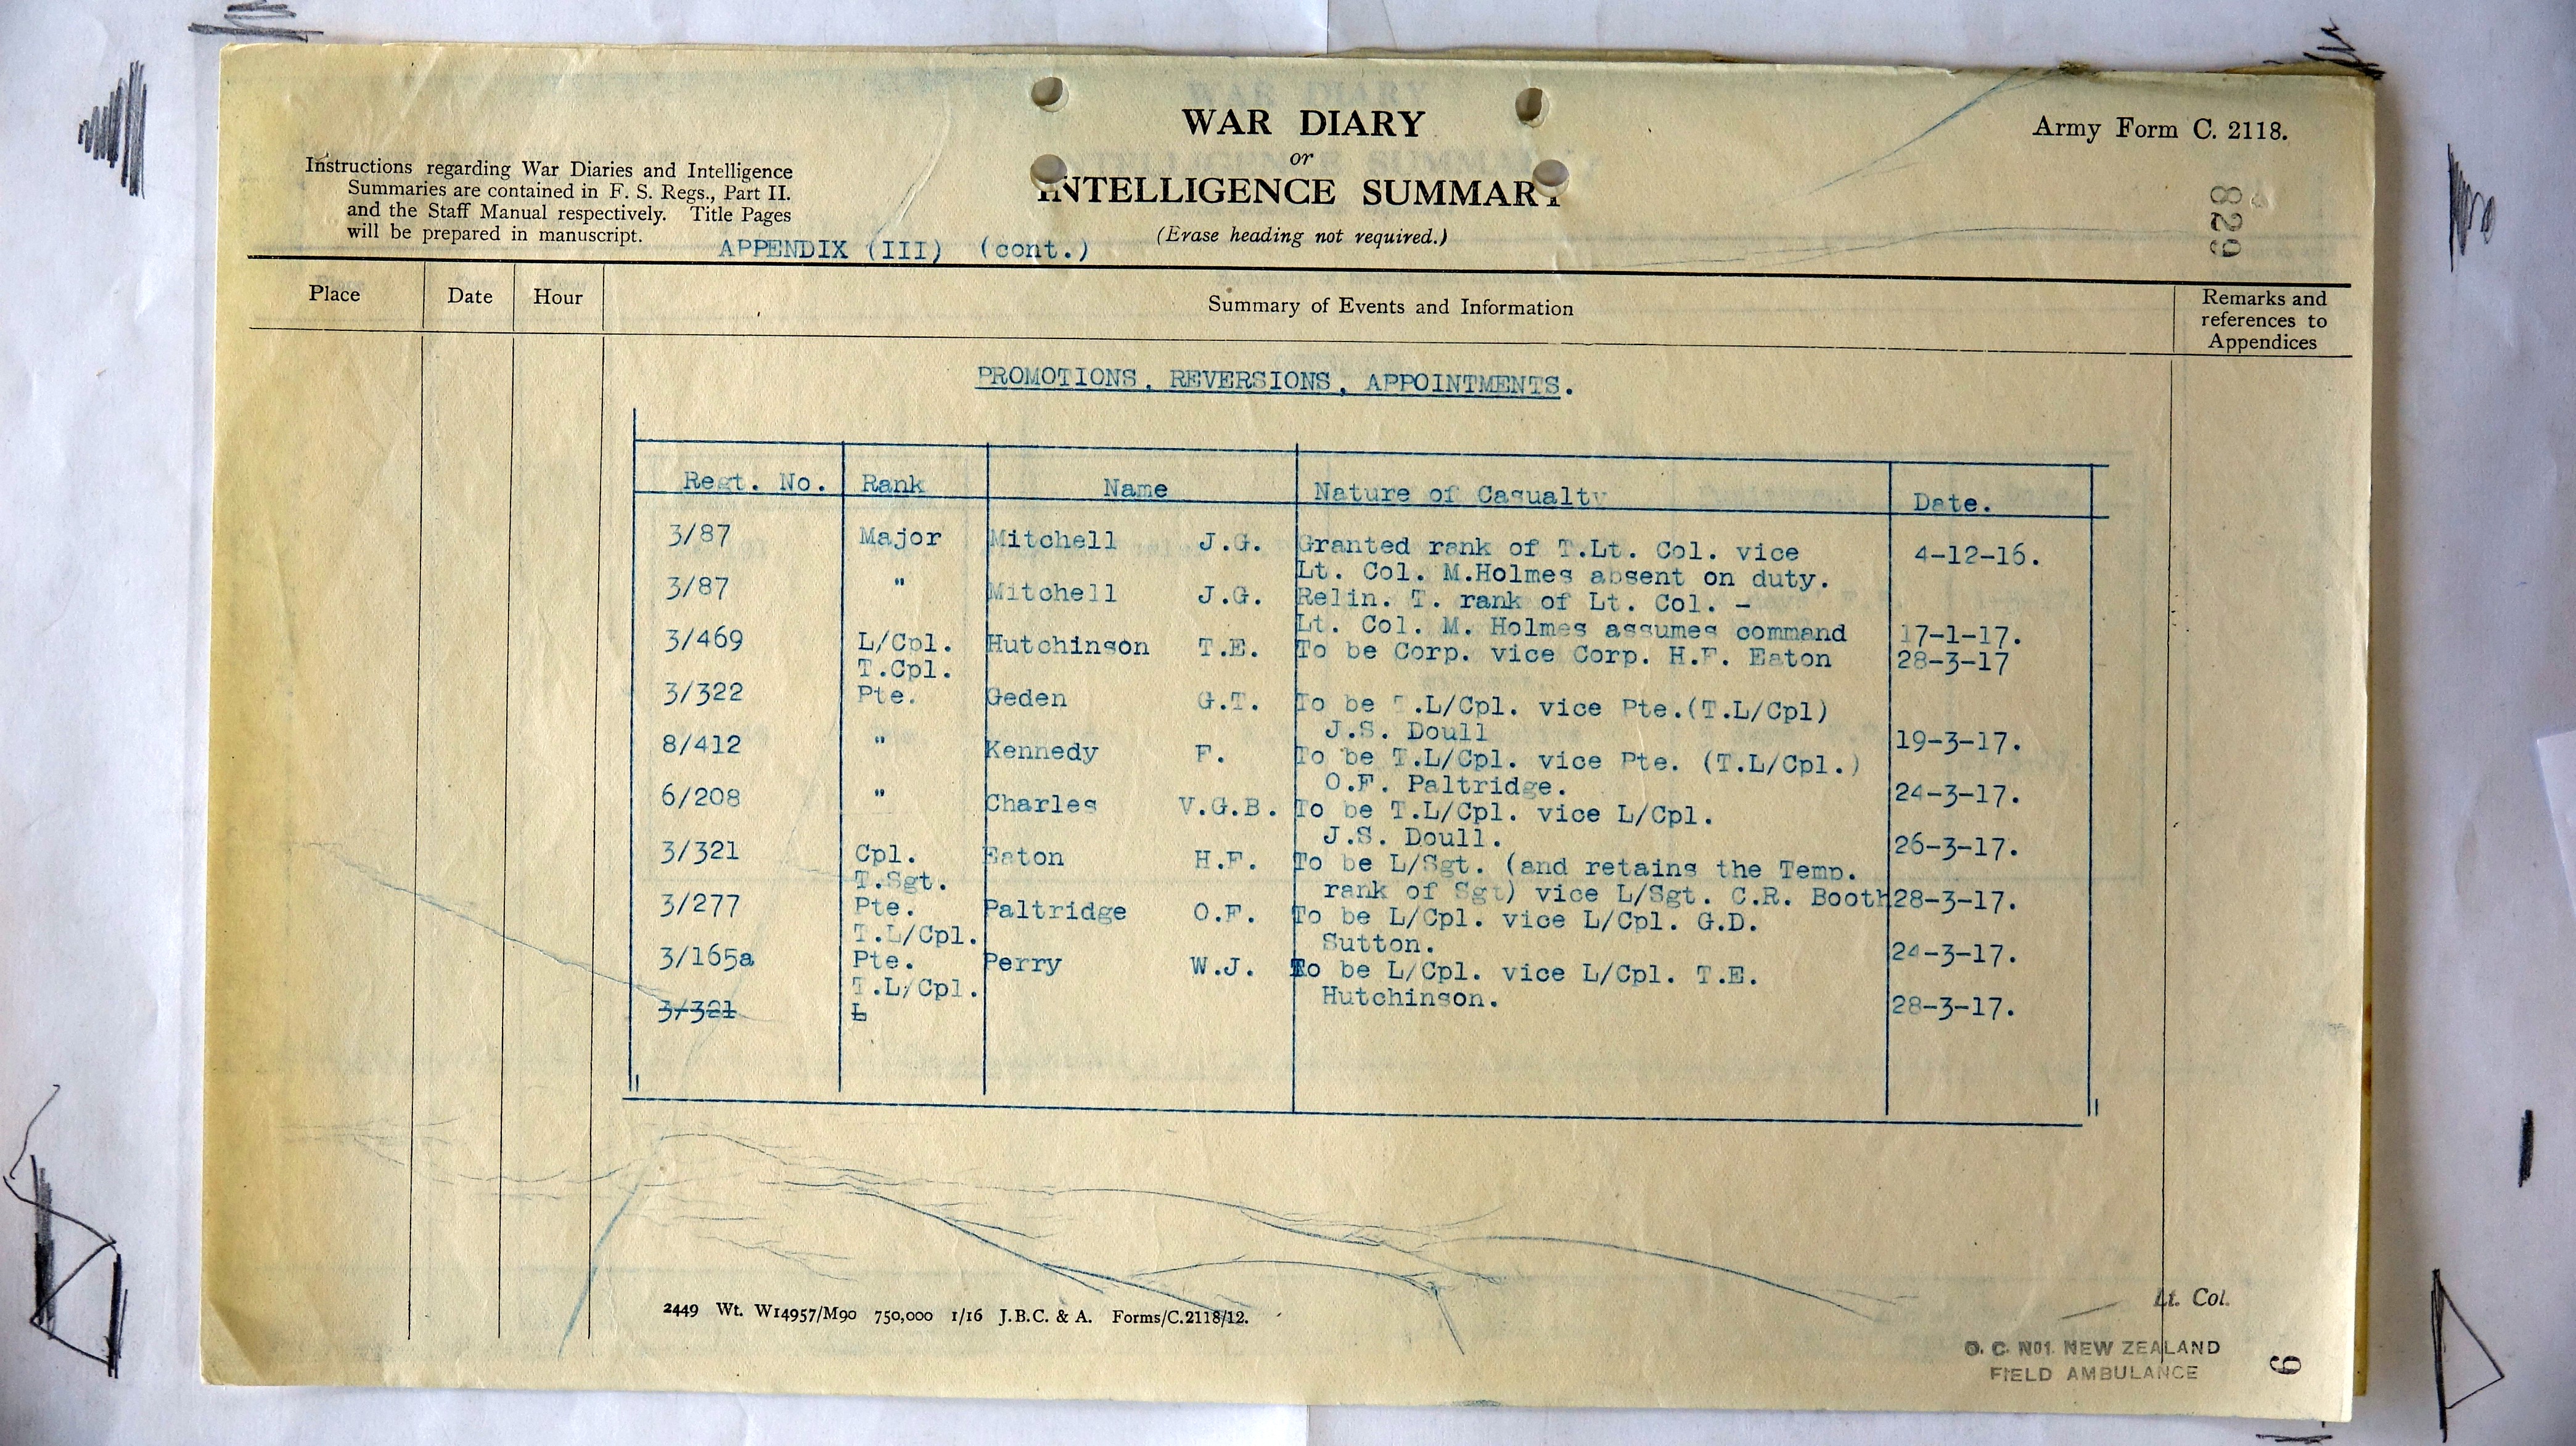 WAR DIARY
or
INTELLIGENCE SUMMARY
(Erase heading not required.)
Army Form C. 2118.
Instructions regarding War Diaries and Intelligence
Summaries are contained in F. S. Regs., Part II.
and the Staff Manual respectively. Title Pages
will be prepared in manuscript.
APPENDIX (III) (cont.)
628
Place Date Hour Summary of Events and Information Remarks and
references to
Appendices
PROMOTIONS, REVERSIONS, APPOINTMENTS.
Regt. No. Rank Name Nature of Casualty Date.
3/87 Major Mitchell J.G. Granted rank of T.Lt. Col. vice 4-12-16.
Lt. Col. M.Holmes absent on duty.
3/87 " Mitchell J.G. Relin. T. rank of Lt. Col. -
Lt. Col. M. Holmes assumes command 17-1-17.
3/469 L/Cpl. Hutchinson T.E. To be Corp. vice Corp. H.F. Eaton 28-3-17
T.Cpl.
3/322 Pte. Geden G.T. To be T.L/Cpl. vice Pte.(T.L/Cpl)
J.S. Doull 19-3-17.
8/412 " Kennedy F. To be T.L/Cpl. vice Pte. (T.L/Cpl.)
O.F. Paltridge. 24-3-17.
6/208 " Charles V.G.B. To be T.L/Cpl. vice L/Cpl.
J.S. Doull. 26-3-17.
3/321 Cpl. Eaton H.F. To be L/Sgt. (and retains the Temp.
T.Sgt. rank of Sgt) vice L/Sgt. C.R. Booth 28-3-17.
3/277 Pte. Paltridge O.F. To be L/Cpl. vice L/Cpl. G.D.
T.L/Cpl. Sutton. 24-3-17.
3/165a Pte. Perry W.J. To be L/Cpl. vice L/Cpl. T.E.
T.L/Cpl. Hutchinson. 28-3-17.
3/321 L
2449 Wt. W14957/M90 750,000 1/16 J.B.C. & A. Forms/C.2118/12.
Lt. Col.
O. C. No1. NEW ZEALAND
FIELD AMBULANCE
6